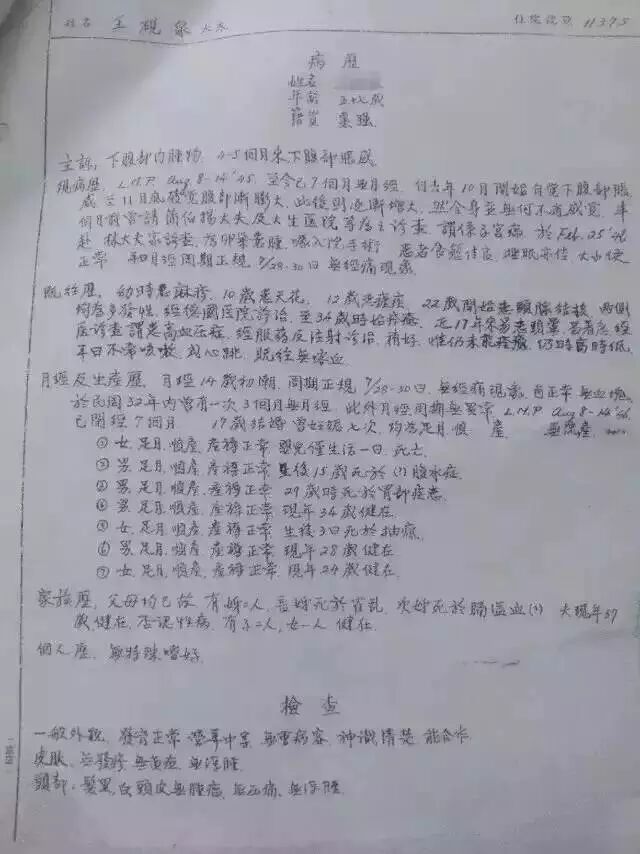 姓名 王硯泉太太 住院號頭 11375
病歷
姓名
年齡 五十七歲
籍貫
主訴，下腹部內腫物，4-5個月來下腹部脹感
現病歷，L.M.P. Aug 8-14'45，至今已7個月無月經，付去年10月開始自覺下腹部脹
感至11月底發覺腹部漸膨大，此後則逐漸增大，然全身並無何不適感覺，
個月前曾請 大夫及 醫院等婦產主診查，謂係子宮瘤，於Feb.25'46
赴林大夫家診查，為卵巢囊腫，囑入院手術 患者食慾佳良，睡眠亦佳，大小便
正常 和月經周期正規 7/28-30日無經痛現象
既往歷，幼時患麻疹，10歲患天花，12歲患瘧疾，22歲開始患頸腺結核，兩側
均為多發性，經德國醫院診治，至34歲時始痊癒，近17年來常患頭暈，
診查謂患高血压症，經服藥及注射診治，稍好，惟仍未能痊癒，仍時高時低，
平日不常咳嗽，及心跳，既往無喀血
月經及生產歷，月經14歲初潮，周期正規，7/28-30日，無經痛現象，色正常，無血塊，
於民國32年內曾有一次3個月無月經，此外月經周期無異常 L.M.P. Aug 8-14'45，
已閉經7個月， 17歲結婚 曾妊娠七次，均為足月順產， 無流產，
① 女，足月，順產，產褥正常，嬰兒僅生活一日，死亡
② 男，足月，順產，產褥正常，生後15歲死於(?)腹水症
③ 男，足月，順產，產褥正常，29歲時死於胃部疾患
④ 男，足月，順產，產褥正常，現年34歲健在
⑤ 女，足月，順產，產褥正常，生後3日死於抽瘋
⑥ 男，足月，順產，產褥正常，現年28歲健在
⑦ 女，足月，順產，產褥正常，現年24歲健在
家族歷，父母均已故，有姊二人，長姊死於霍亂，次姊死於腦溢血(?) 夫現年57
歲健在，否認性病，有子二人，女一人健在
個人歷，無特殊嗜好
檢查
一般外觀，發育正常，營養中等，無重病容，神識清楚，能合作
皮膚，無發疹，無黃疸，無浮腫
頭部，髮黑，白，頭皮無腫瘤，無压痛，無浮腫